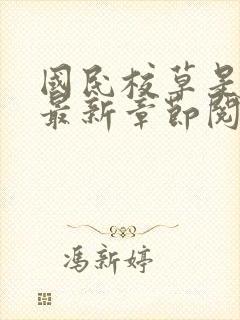 國民校草是
最新章節閱
馮新婷